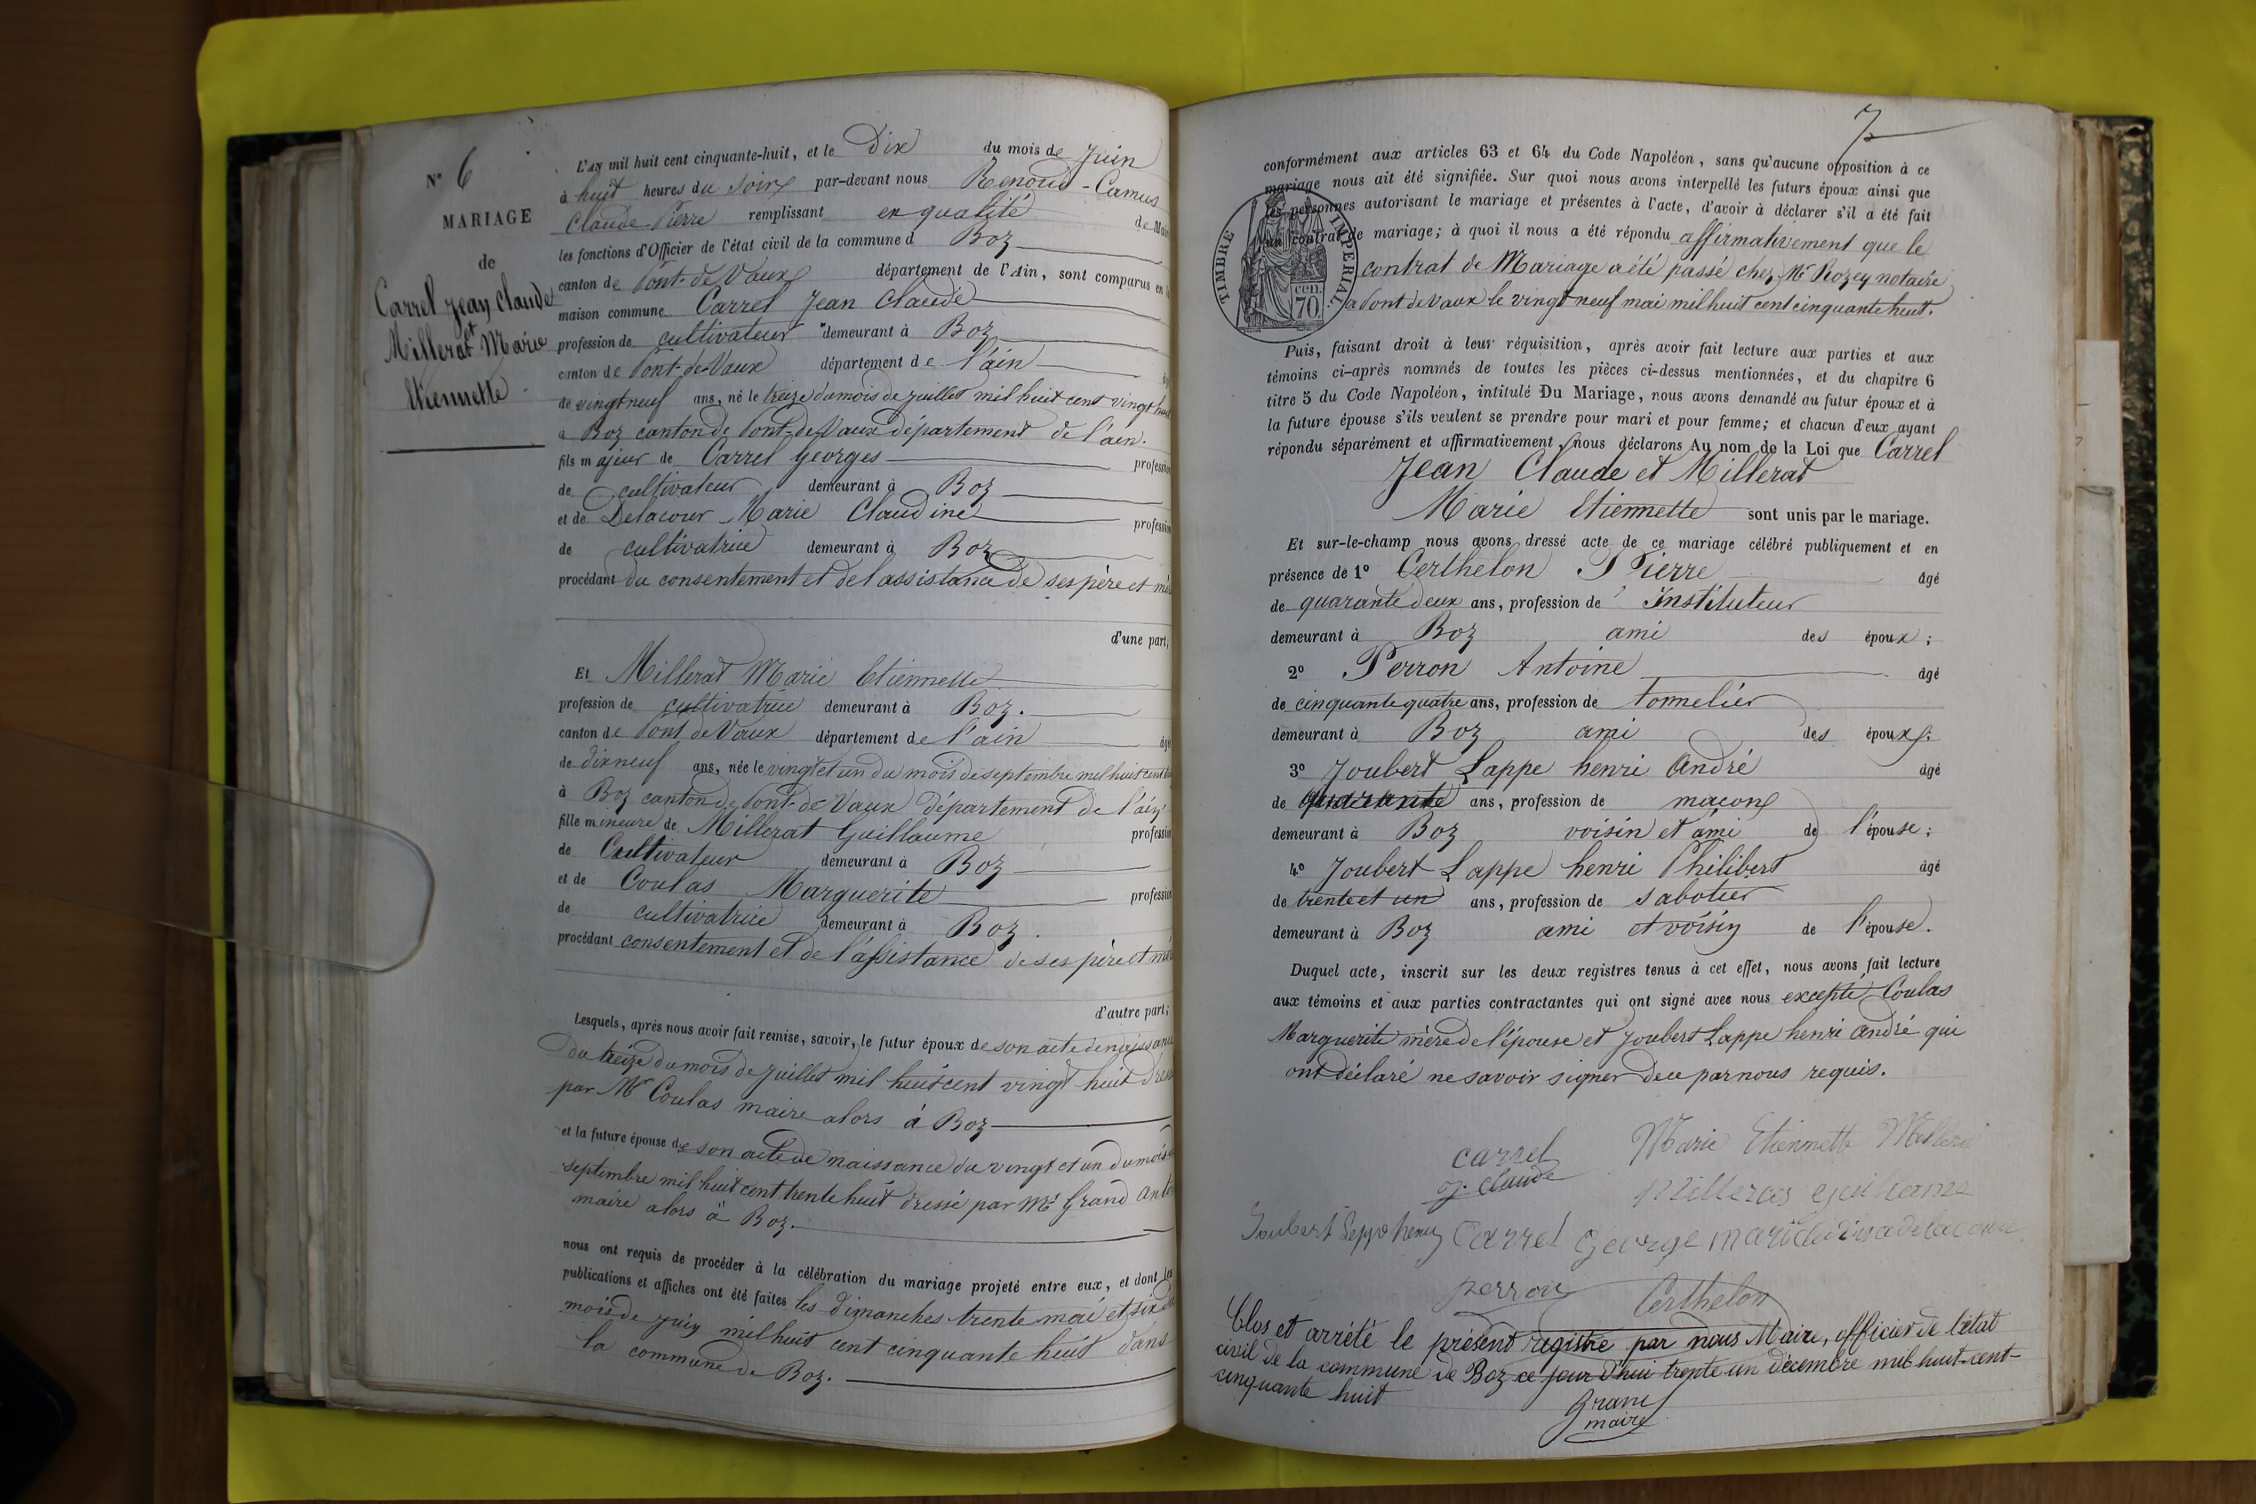 N° 6
MARIAGE
de
Carrel Jean Claude
et
Millerat Marie
Etiennette
L'AN mil huit cent cinquante-huit, et le Dix du mois de Juin
à huit heures du soir par-devant nous Renoud-Camus
Claude Pierre remplissant en qualité de
les fonctions d'Officier de l'état civil de la commune d Boz
canton de Pont-de-Vaux département de l'Ain, sont comparus en
maison commune Carrel Jean Claude
profession de cultivateur demeurant à Boz
canton de Pont-de-Vaux département de l'ain
de vingt neuf ans, né le treize du mois de juillet mil huit cent vingt huit
à Boz canton de Pont-de-Vaux département de l'ain.
fils majeur de Carrel Georges profession
de cultivateur demeurant à Boz
et de Delacour Marie Claudine profession
de cultivatrice demeurant à Boz
procédant du consentement et de l'assistance de ses père et mère
d'une part;
Et Millerat Marie Etiennette
profession de cultivatrice demeurant à Boz.
canton de Pont de Vaux département de l'ain
de dix neuf ans, née le vingt et un du mois de septembre mil huit cent
à Boz canton de Pont-de-Vaux département de l'ain
fille mineure de Millerat Guillaume profession
de Cultivateur demeurant à Boz
et de Coulas Marguerite profession
de cultivatrice demeurant à Boz.
procédant consentement et de l'assistance de ses père et mère
d'autre part;
Lesquels, après nous avoir fait remise, savoir, le futur époux de son acte de naissance
du treize du mois de juillet mil huit cent vingt huit dressé
par Mr Coulas maire alors à Boz
et la future épouse de son acte de naissance du vingt et un du mois
septembre mil huit cent trente huit dressé par Mr Grand
maire alors à Boz.
nous ont requis de procéder à la célébration du mariage projeté entre eux, et dont les
publications et affiches ont été faites les dimanches trente mai et six du
mois de juin mil huit cent cinquante huit dans
la commune de Boz.
7
conformément aux articles 63 et 64 du Code Napoléon, sans qu'aucune opposition à ce
mariage nous ait été signifiée. Sur quoi nous avons interpellé les futurs époux ainsi que
les personnes autorisant le mariage et présentes à l'acte, d'avoir à déclarer s'il a été fait
un contrat de mariage; à quoi il nous a été répondu affirmativement que le
contrat de Mariage a été passé chez Mr Rozey notaire
a Pont de Vaux le vingt neuf mai mil huit cent cinquante huit.
TIMBRE IMPERIAL
70 cen.
Puis, faisant droit à leur réquisition, après avoir fait lecture aux parties et aux
témoins ci-après nommés de toutes les pièces ci-dessus mentionnées, et du chapitre 6
titre 5 du Code Napoléon, intitulé Du Mariage, nous avons demandé au futur époux et à
la future épouse s'ils veulent se prendre pour mari et pour femme; et chacun d'eux ayant
répondu séparément et affirmativement, nous déclarons Au nom de la Loi que Carrel
Jean Claude et Millerat
Marie Etiennette sont unis par le mariage.
Et sur-le-champ nous avons dressé acte de ce mariage célébré publiquement et en
présence de 1° Certhelon Pierre âgé
de quarante deux ans, profession de instituteur
demeurant à Boz ami des époux;
2° Perron Antoine âgé
de cinquante quatre ans, profession de tonnelier
demeurant à Boz ami des époux;
3° Joubert Lappe henri André âgé
de quarante ans, profession de maçon
demeurant à Boz voisin et ami de l'épouse;
4° Joubert Lappe henri Philibert âgé
de trente et un ans, profession de sabotier
demeurant à Boz ami et voisin de l'épouse.
Duquel acte, inscrit sur les deux registres tenus à cet effet, nous avons fait lecture
aux témoins et aux parties contractantes qui ont signé avec nous excepté Coulas
Marguerite mère de l'épouse et Joubert Lappe henri André qui
ont déclaré ne savoir signer de ce par nous requis.
carrel
j. claude
Marie Etiennette
Joubert henry Carrel George
perron Certhelon
Clos et arrété le présent registre par nous Maire, officier de l'état
civil de la commune de Boz ce jour d'hui trente un décembre mil huit-cent-
cinquante huit
maire